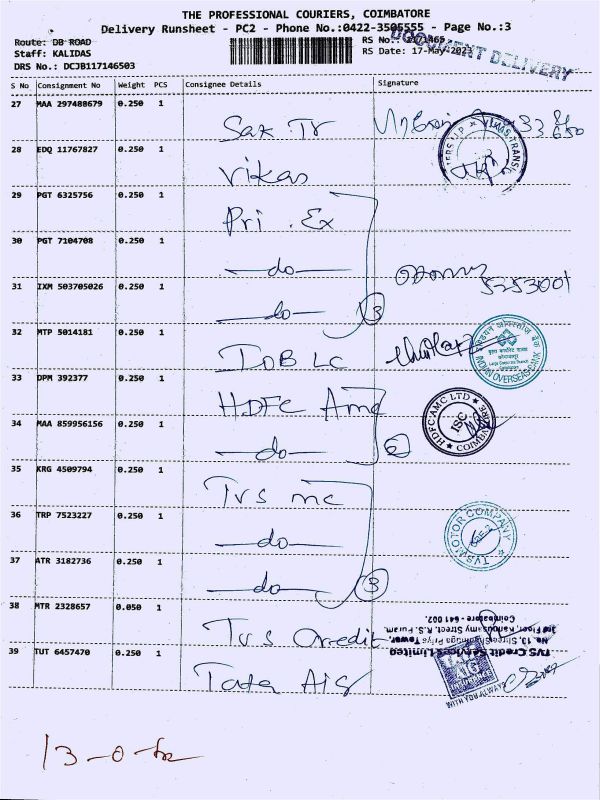 THE PROFESSIONAL COURIERS, COIMBATORE
Delivery Runsheet - PC2 - Phone No.:0422-3505555 - Page No.:3
Route: DB ROAD
RS No.:
Staff: KALIDAS
RS Date: 17-May-2023
DRS No.: DCJB117146503
DOCUMENT DELIVERY
S No Consignment No Weight PCS Consignee Details Signature
27 MAA 297488679 0.250 1
Sak Tr
28 EDQ 11767827 0.250 1
Vikas
29 PGT 6325756 0.250 1
Pri . Ex
30 PGT 7104708 0.250 1
do
31 IXM 503705026 0.250 1
do 3
32 MTP 5014181 0.250 1
IOB LC
INDIAN OVERSEAS BANK
33 DPM 392377 0.250 1
HDFC Amc
HDFC AMC LTD ISC COIMBATORE
34 MAA 859956156 0.250 1
do
35 KRG 4509794 0.250 1
Tvs mc
36 TRP 7523227 0.250 1
do
TVS MOTOR COMPANY
37 ATR 3182736 0.250 1
do 3
38 MTR 2328657 0.050 1
Tvs Credit
TVS Credit Services Limited
No. 13, Shree Shanmuga Priya Tower,
3rd Floor, Kangusamy Street, R.S. Puram,
Coimbatore - 641 002.
39 TUT 6457470 0.250 1
Tata Aig
WITH YOU ALWAYS